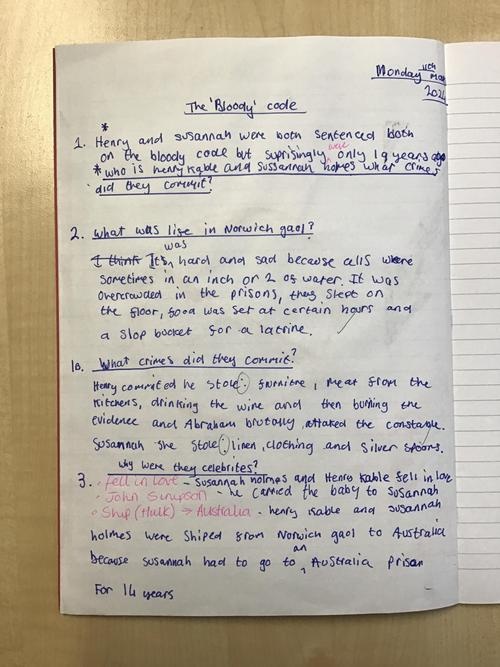 Monday 11th Mar
2024
The 'Bloody' code
*
1. Henry and susannah were both sentenced both
on the bloody code but suprisingly was only 19 years ago
* who is henry kable and Sussannah homes what crimes
did they commit?
2. what was life in Norwich gaol?
I think It's was hard and sad because cells where
sometimes in an inch or 2 of water. It was
overcrowded in the prisons, they slept on
the floor, food was set at certain hours and
a slop bucket for a latrine.
1a. What crimes did they commit?
Henry commited he stole: furnitre, meat from the
kitchens, drinking the wine and then burning the
evidence and Abraham brutally attaked the constable.
Susannah she stole: linen, clothing and silver spoons.
why were they celebrites?
3. • fell in love - Susannah holmes and Henro kable fell in love
• John Simpson - he carried the baby to susannah
• Ship (Hulk) → Australia - henry kable and susannah
holmes were shiped from Norwich gaol to Australia
because susannah had to go to an Australia prison
For 14 years